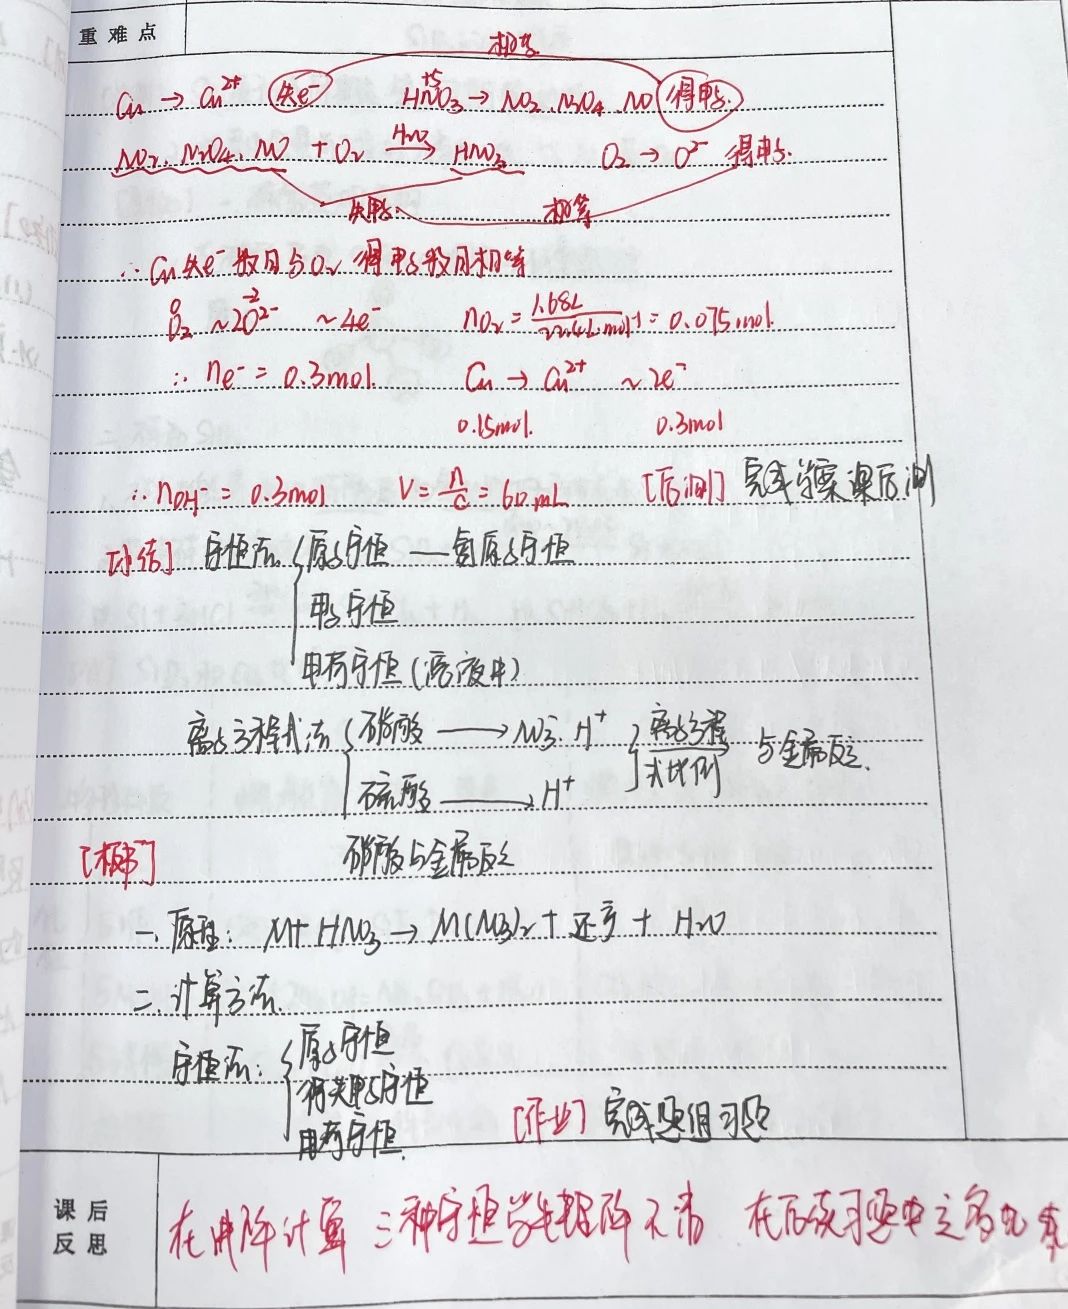 重难点
相等
Cu → Cu²⁺ 失e⁻ HNO₃(+5) → NO₂、N₂O₄、NO 得电子
NO₂、N₂O₄、NO + O₂ —H₂O→ HNO₃ O₂ → O²⁻ 得电子
失电子 相等
∴ Cu失e⁻数目与O₂得电子数目相等
0 -2
O₂ ~ 2O²⁻ ~ 4e⁻ nO₂ = 1.68L / 22.4L·mol⁻¹ = 0.075mol
∴ ne⁻ = 0.3mol Cu → Cu²⁺ ~ 2e⁻
0.15mol 0.3mol
∴ nOH⁻ = 0.3mol V = n/c = 60mL [后测] 完成学案课后测
[小结] 守恒法 { 原子守恒 — 氮原子守恒
电子守恒
电荷守恒(溶液中)
离子方程式法 { 硝酸 → NO₃⁻、H⁺ } 离子方程式比例 与金属反应
硫酸 → H⁺
[板书] 硝酸与金属反应
一、原理: M + HNO₃ → M(NO₃)₂ + 还产 + H₂O
二、计算方法
守恒法: { 原子守恒
得失电子守恒
电荷守恒
[作业] 完成题组习题
课后反思
在讲解计算 三种守恒学生 不清 在后续习题中